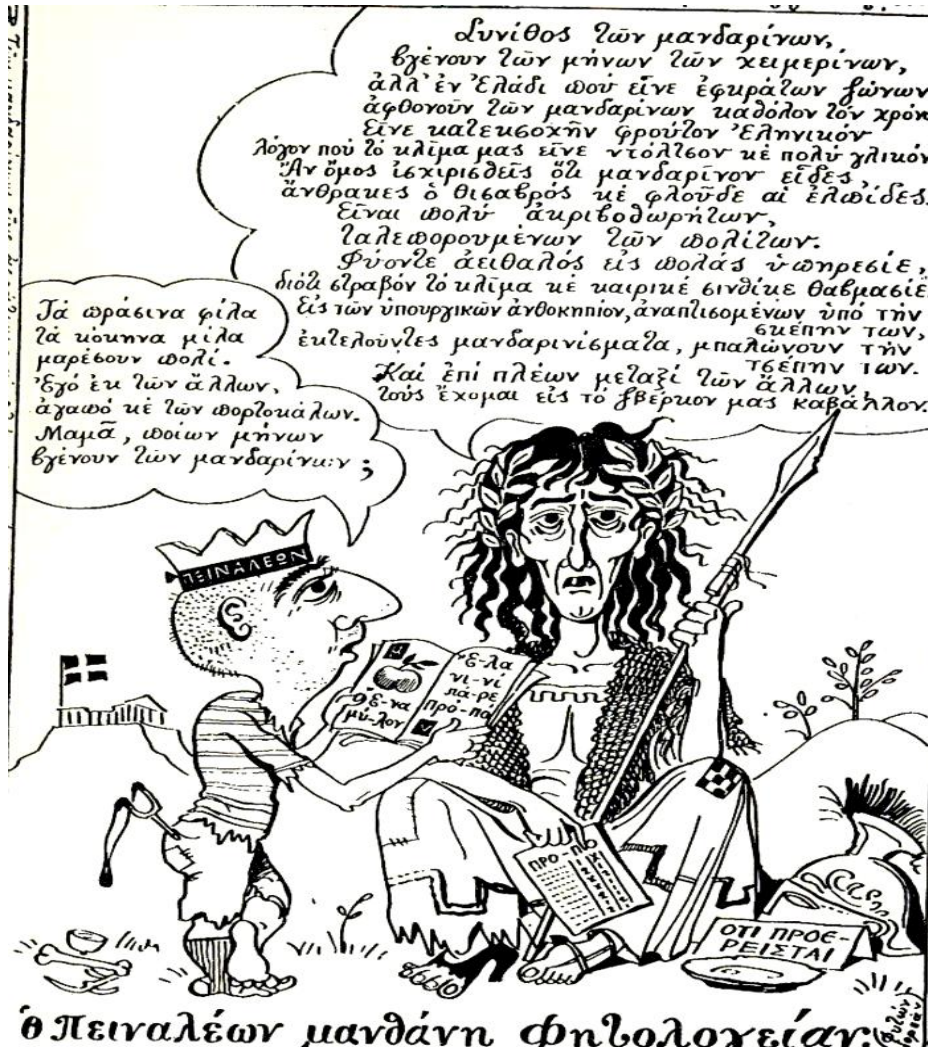 Συνίθος τῶν μανδαρίνων,
βγένουν τῶν μήνων τῶν χειμερίνων,
ἀλλ' ἐν Ἑλάδι ποὺ εἶνε ἐφκράτων ζώνων
ἀφθονοῦν τῶν μανδαρίνων καθόλον τὸν χρόνον
Εἶνε κατεκσοχῆν φροῦτον Ἑληνικόν
λόγον ποὺ τὸ κλίμα μας εἶνε ντόλτσον κὲ πολὺ γλικόν
Ἂν ὅμος ἰσχιρισθεῖς ὅτι μανδαρίνον εἶδες
ἄνθρακες ὁ θισαβρός κὲ φλοῦδε αἱ ἐλπίδες.
Εἶναι πολὺ ἀκριβοθωρήτων,
ταλεπορουμένων τῶν πολίτων.
Φύοντε ἀειθαλός εἰς πολάς ὑπηρεσίε,
διότι στραβόν τὸ κλίμα κὲ καιρικέ σινθίκε θαβμασίε
Εἰς τῶν ὑπουργικῶν ἀνθοκηπίον, ἀναπτισομένων ὑπό τὴν
σκέπην των,
ἐκτελοῦντες μανδαρινίσματα, μπαλώνουν τὴν
τσέπην των.
Καί ἐπί πλέων μεταξί τῶν ἄλλων,
τούς ἔχομαι εἰς τὸ ζβέρκον μας καβάλλον.
Τά πράσινα φίλα
τά κόκηνα μίλα
μαρέσουν πολί.
Ἐγό ἐκ τῶν ἄλλων,
ἀγαπό κὲ τῶν πορτοκάλων.
Μαμᾶ, ποίων μήνων
βγένουν τῶν μανδαρίνων;
ΠΕΙΝΑΛΕΩΝ
Ἔ-να
μῦ-λον
Ἔ-λα
νι-νί
πά-ρε
προ-πό
ΠΡΟ-ΠΟ
ΟΤΙ ΠΡΟΕ-
ΡΕΙΣΤΑΙ
ὁ Πειναλέων μανθάνη Φητολογείαν.